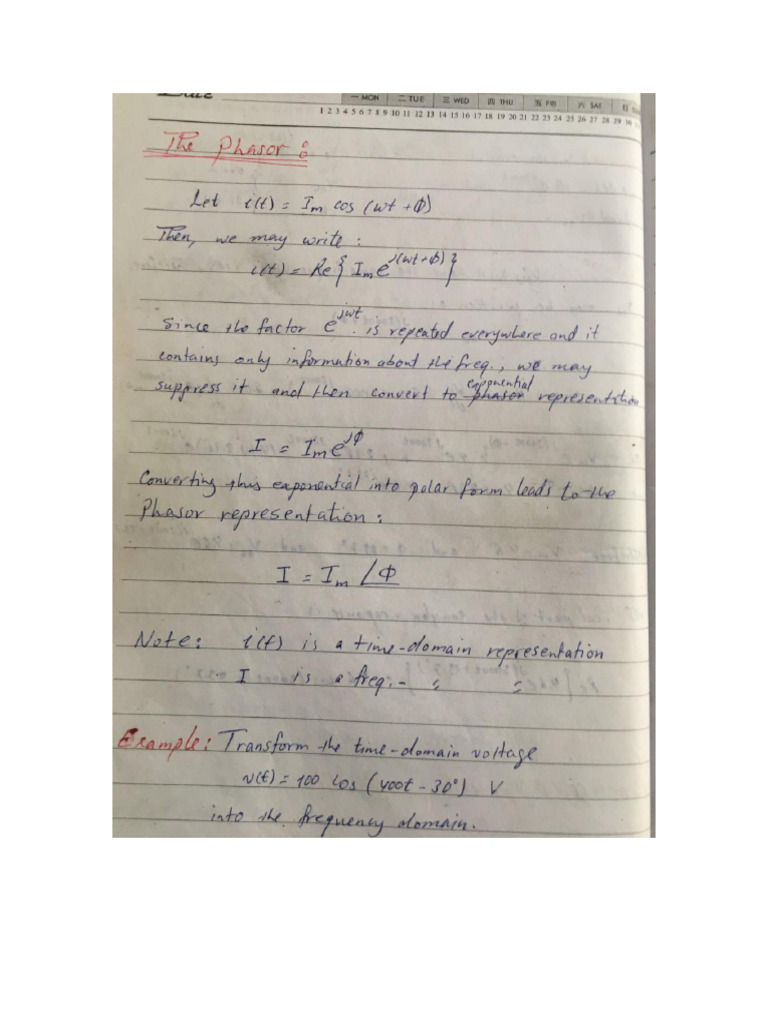 Date
一 MON 二 TUE 三 WED 四 THU 五 FRI 六 SAT 日
1 2 3 4 5 6 7 8 9 10 11 12 13 14 15 16 17 18 19 20 21 22 23 24 25 26 27 28 29 30
The Phasor :
Let i(t) = Im cos (wt + Φ)
Then, we may write :
i(t) = Re { Im e^j(wt+Φ) }
Since the factor e^jwt is repeated everywhere and it
contains only information about the freq., we may
suppress it and then convert to phasor exponential representation
I = Im e^jΦ
Converting this exponential into polar form leads to the
Phasor representation :
I = Im ∠Φ
Note : i(t) is a time-domain representation
I is a freq. - " "
Example : Transform the time-domain voltage
v(t) = 100 cos (400t - 30°) V
into the frequency domain.